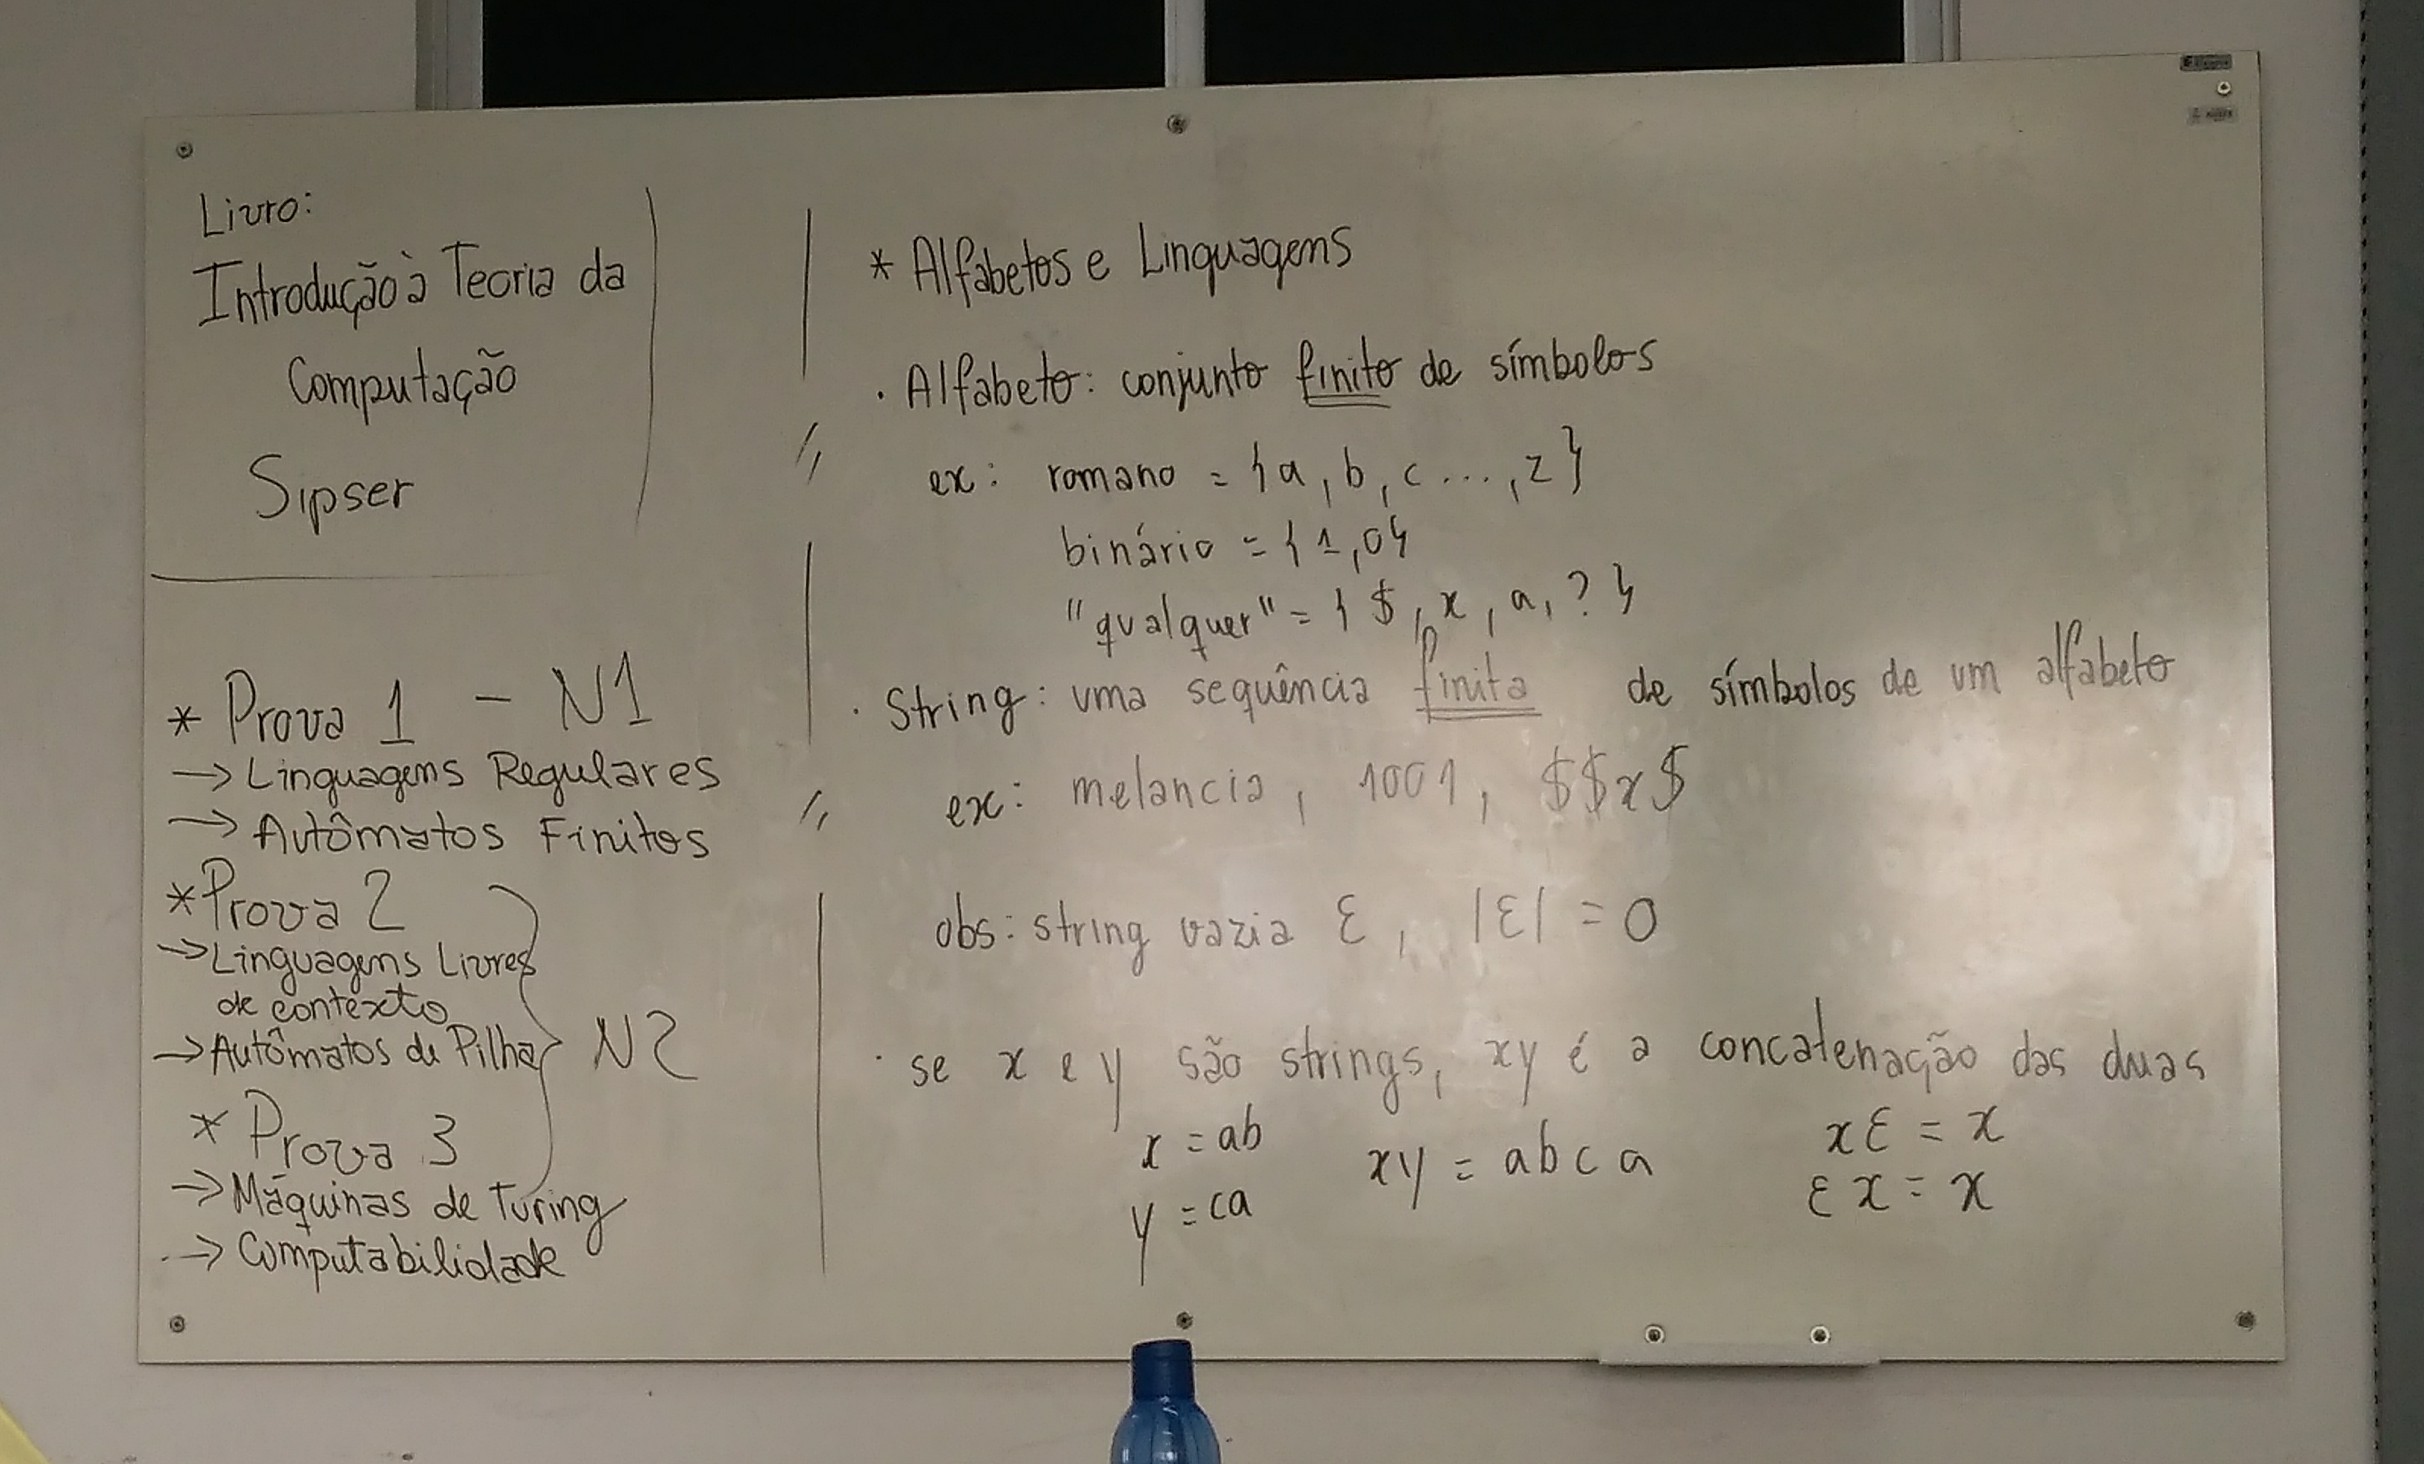 Livro:
Introdução à Teoria da
Computação
Sipser
* Prova 1 - N1
→ Linguagens Regulares
→ Autômatos Finitos
* Prova 2
→ Linguagens Livres
de contexto
→ Autômatos de Pilha
N2
* Prova 3
→ Máquinas de Turing
→ Computabilidade
* Alfabetos e Linguagens
· Alfabeto: conjunto finito de símbolos
ex: romano = {a, b, c ..., z}
binário = {1,0}
"qualquer" = {$, x, a, ?}
· String: uma sequência finita de símbolos de um alfabeto
ex: melancia, 1001, $$x$
obs: string vazia ε, |ε| = 0
· se x e y são strings, xy é a concatenação das duas
x = ab
y = ca
xy = abca
xε = x
εx = x